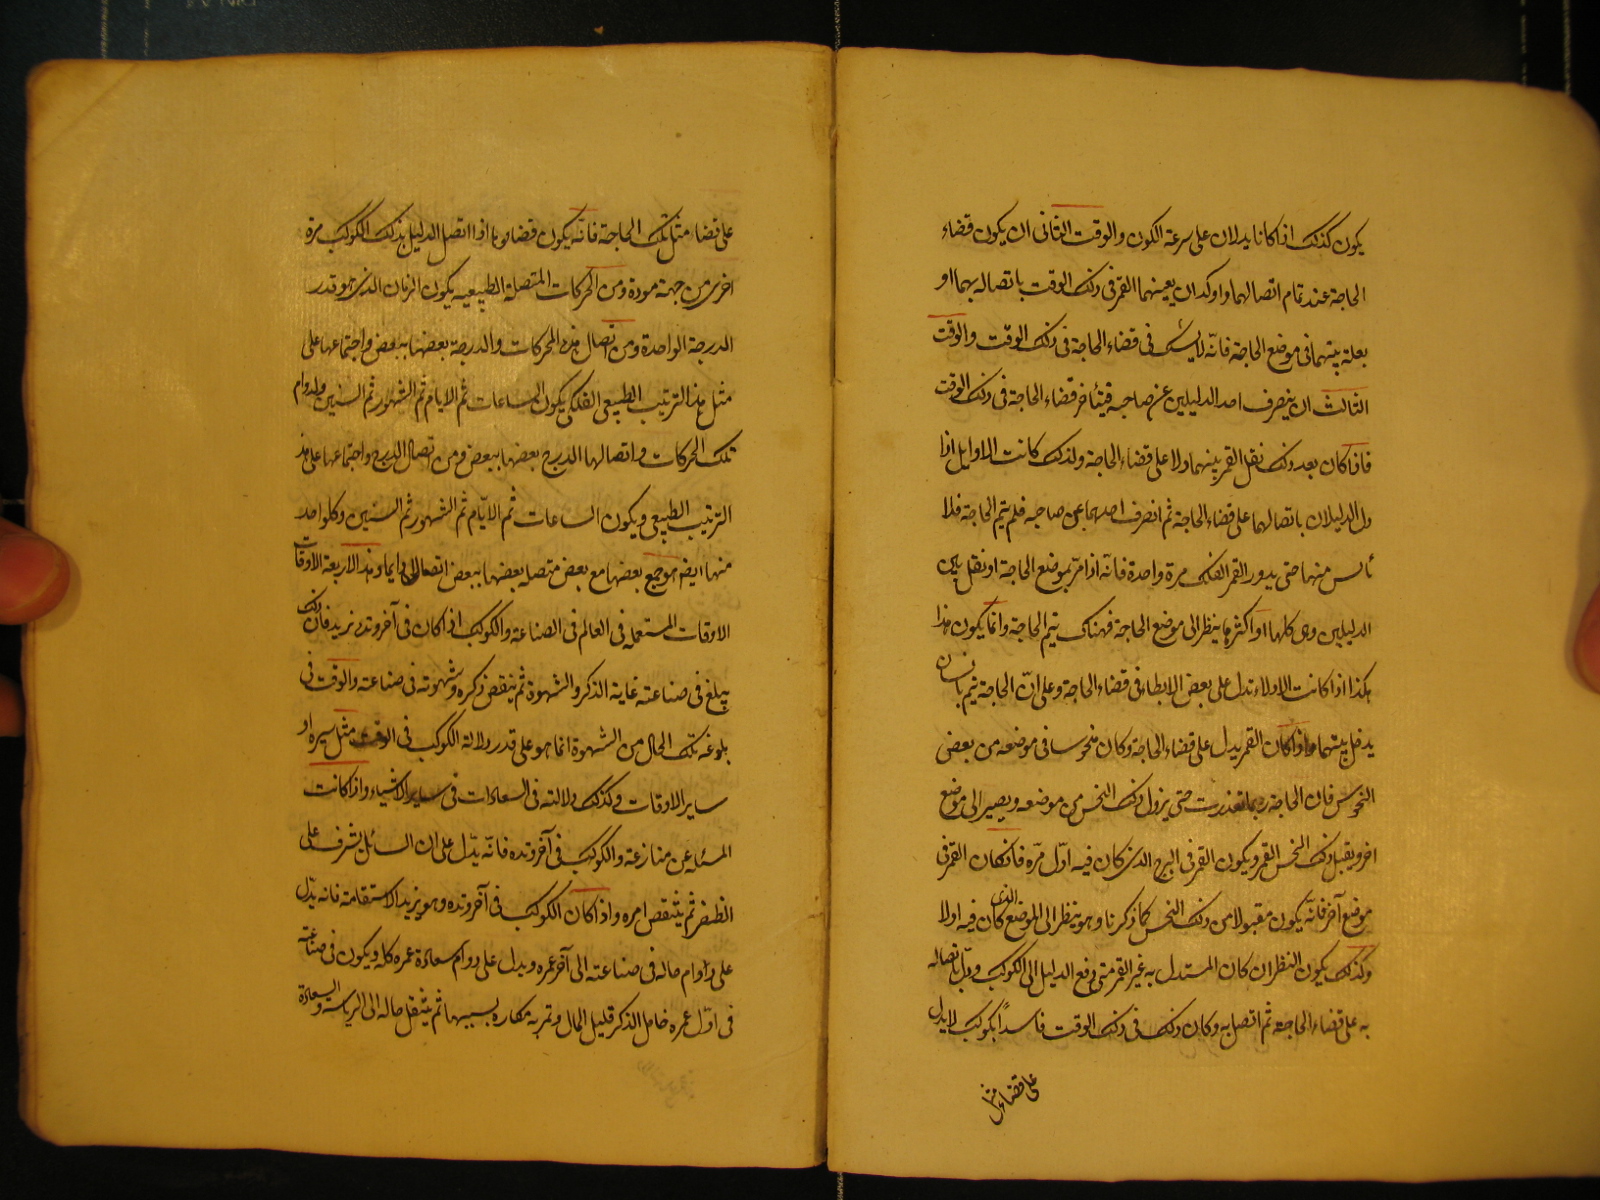 يكون كذلك اذا كانا يدلان على سرعة الكون والوقت الثانى ان يكون قضاء
الحاجة عند تمام اتصالهما واوكد ان يعينهما القمر فى ذلك الوقت باتصاله بهما او
بعلة بينهما فى موضع الحاجة فانّه لا يشك فى قضاء الحاجة فى ذلك الوقت والوقت
الثالث ان ينصرف احد الدليلين عن صاحبه فيتأخر قضاء الحاجة فى ذلك الوقت
فاذا كان بعد ذلك نقل القمر بينهما ولا على قضاء الحاجة ولذلك كانت الاوايل اذا
دل الدليلان باتصالهما على قضاء الحاجة ثم انصرف احدهما عن صاحبه فلم يتم الحاجة فلا
تأس منها حتى يدور القمر الفلك مرة واحدة فانّه اذا مرّ بموضع الحاجة او نقل بين
الدليلين وى كلها او اكثرها ينظر الى موضع الحاجة فهناك يتم الحاجة وانما يكون هذا
هكذا اذا كانت الاولاء تدل على بعض الابطاء فى قضاء الحاجة وعلى انّ الحاجة يتم بانسان
يدخل بينهما واذا كان القمر يدل على قضاء الحاجة وكان منحوسا فى موضعه من بعض
النحوس فان الحاجة ربما تعذرت حتى يزول ذلك النحس من موضعه ويصير الى موضع
اخر ويقبل ذلك النحس القمر ويكون القمر فى البرج الذى كان فيه اوّل مرّه فاذا كان القمر فى
موضع آخر فانّه يكون مقبولا من ذلك النحس كما ذكرنا وهو ينظر الى الموضع الذى كان فيه اولا
وكذلك يكون النظر ان كان المستدل به غير القمر متى دفع الدليل الى الكوكب ودلّ باتصاله
به على قضاء الحاجة ثم اتصل به وكان ذلك فى ذلك الوقت فاسداً بكوكب لا يدل
على قضاء مثل
على قضاء مثل تلك الحاجة فانّه يكون قضاوها اذا اتصل الدليل بذلك الكوكب مرة
اخرى من جهة مودة ومن الحركات المتصلة الطبيعيه يكون الزمان الذى هو قدر
الدرجة الواحدة ومن اتصال هذه الحركات والدرجة بعضها ببعض واجتماعها على
مثل هذا الترتيب الطبيعى الفلكى يكون الساعات ثم الايام ثم الشهور ثم السنين ولدوام
تلك الحركات واتصالها الدرج بعضها ببعض ومن اتصال الدرج واجتماعها على هذا
الترتيب الطبيعى ويكون الساعات ثم الايّام ثم الشهور ثم السنين وكل واحد
منها ايضا هو جمع بعضها مع بعض متصله بعضها ببعض اتصالا دايما وهذا الاربعة الاوقات
الاوقات المستعمله فى العالم فى الصناعة والكوكب اذا كان فى آخر وتده يزيد فان ذلك
يبلغ فى صناعته غاية الذكر والشهوة ثم ينقص ذكره وشهوته فى صناعته والوقت فى
بلوغه تلك الحال من الشهوة انما هو على قدر دلالة الكوكب فى الوقت مثل سيره او
ساير الاوقات وكذلك دلالته فى السعادات فى ساير الاشياء واذا كانت
المسئله عن منازعة والكوكب فى آخر وتده فانّه يدّل على ان السائل يشرف على
الظفر ثم ينتقص امره واذا كان الكوكب فى آخر وتده وهو يزيد الاستقامة فانه يدّل
على دوام حاله فى صناعته الى آخر عمره ويدل على دوام سعادة عمره كله ويكون فى صناعته
فى اوّل عمره خامل الذكر قليل المال وتمر به مكاره بسببها ثم ينتقل حاله الى الرياسة والسعادة